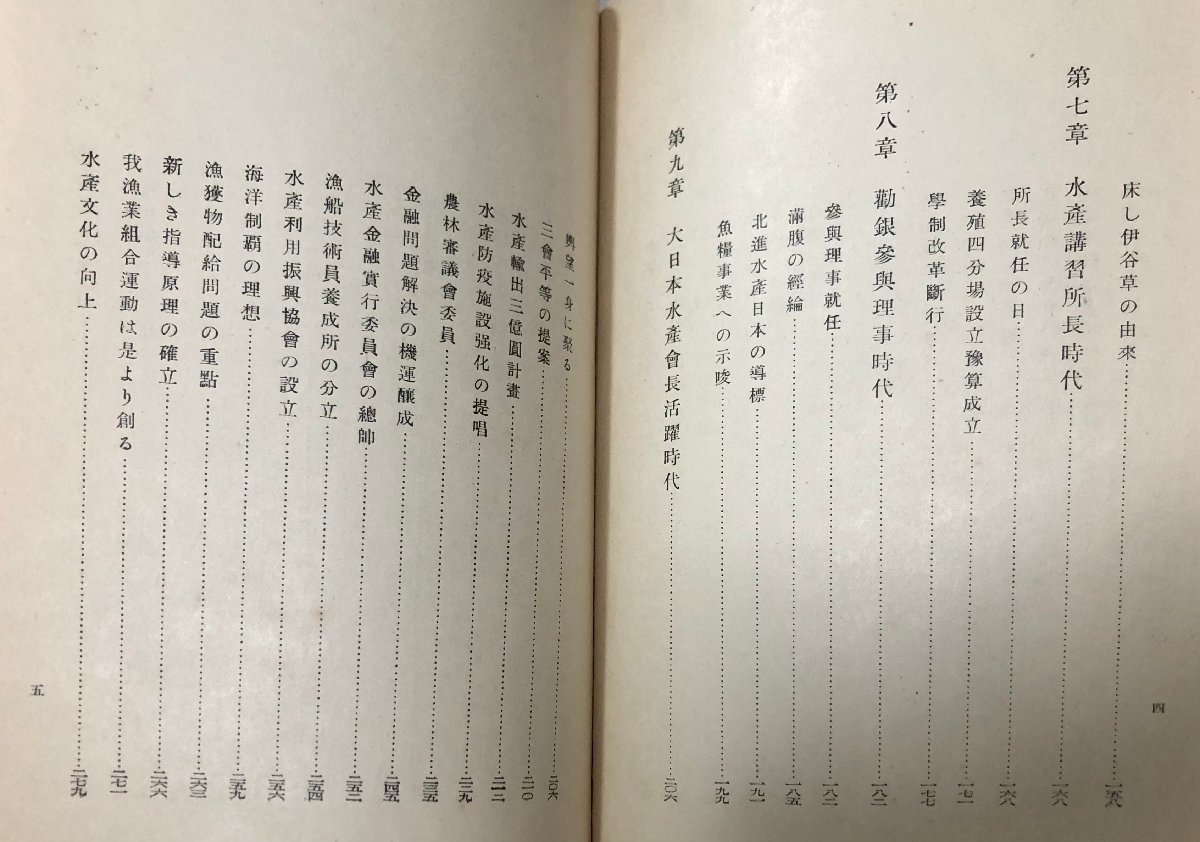 床し伊谷草の由來……一五八
第七章　水產講習所長時代……一六八
所長就任の日……一六八
養殖四分場設立豫算成立……一七一
學制改革斷行……一七七
第八章　勸銀參與理事時代……一八二
參與理事就任……一八二
滿腹の經綸……一八五
北進水產日本の導標……一九一
魚糧事業への示唆……一九九
第九章　大日本水產會長活躍時代……二〇六
四
輿望一身に聚る……二〇六
三會平等の提案……二一〇
水產輸出三億圓計畫……二一二
水產防疫施設强化の提唱……二一九
農林審議會委員……二三五
金融問題解決の機運釀成……二四五
水產金融實行委員會の總帥……二五二
漁船技術員養成所の分立……二五四
水產利用振興協會の設立……二五六
海洋制覇の理想……二五九
漁獲物配給問題の重點……二六三
新しき指導原理の確立……二六六
我漁業組合運動は是より創る……二七一
水產文化の向上……二七九
五